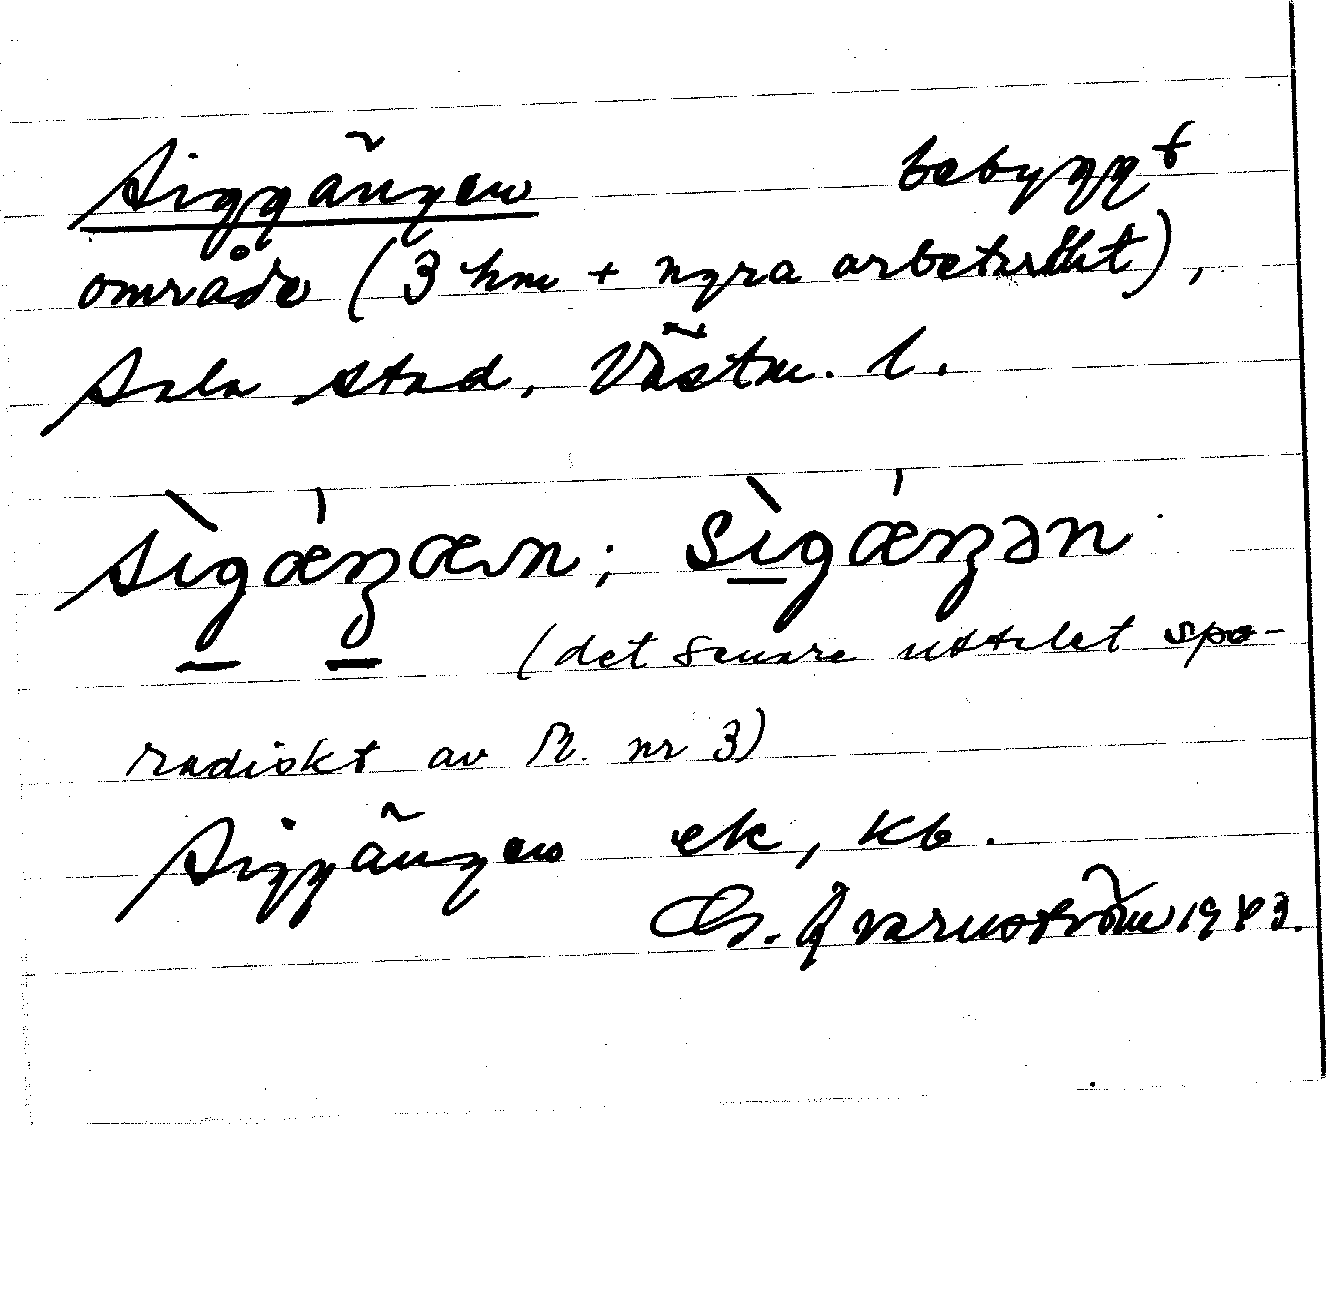 Siggängen bebyggt
område (3 hm + ngra arbetarlht),
Sala stad, Västm. l.
sìgǽŋæn; sìgǽŋən
(det senare uttalet spo-
radiskt av M. nr 3)
Siggängen ek, kb.
Ch. Qvarnström 1943.